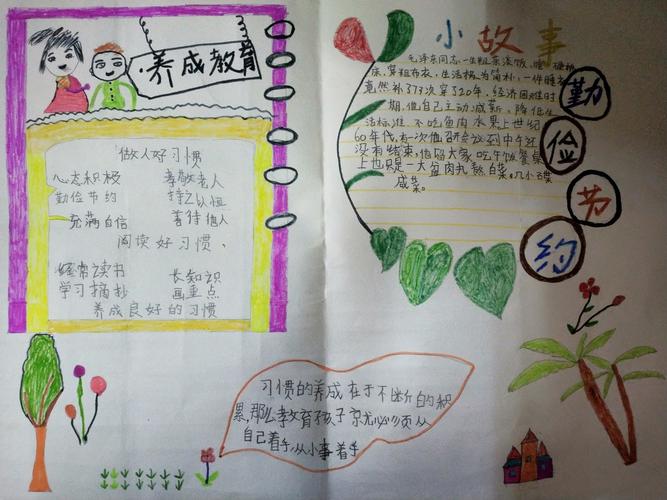 养成教育
做人好习惯
心态积极 孝敬老人
勤俭节约 持之以恒
充满自信 善待他人
阅读好习惯、
经常读书 长知识
学习摘抄 画重点
养成良好的习惯
小故事
毛泽东同志一生粗茶淡饭、睡硬板
床、穿粗布衣,生活极为简朴,一件睡衣
竟然补了73次穿了20年。经济困难时
期,他自己主动减薪、降低生
活标准,不吃鱼肉水果上世纪
60年代,有一次他召开会议到中午还
没有结束,他留大家吃午饭,餐桌
上也只是一大盆肉丸熬白菜。几小碟
咸菜。
勤
俭
节
约
习惯的养成在于不断的积
累,那么教育孩子就必须从
自己着手,从小事着手